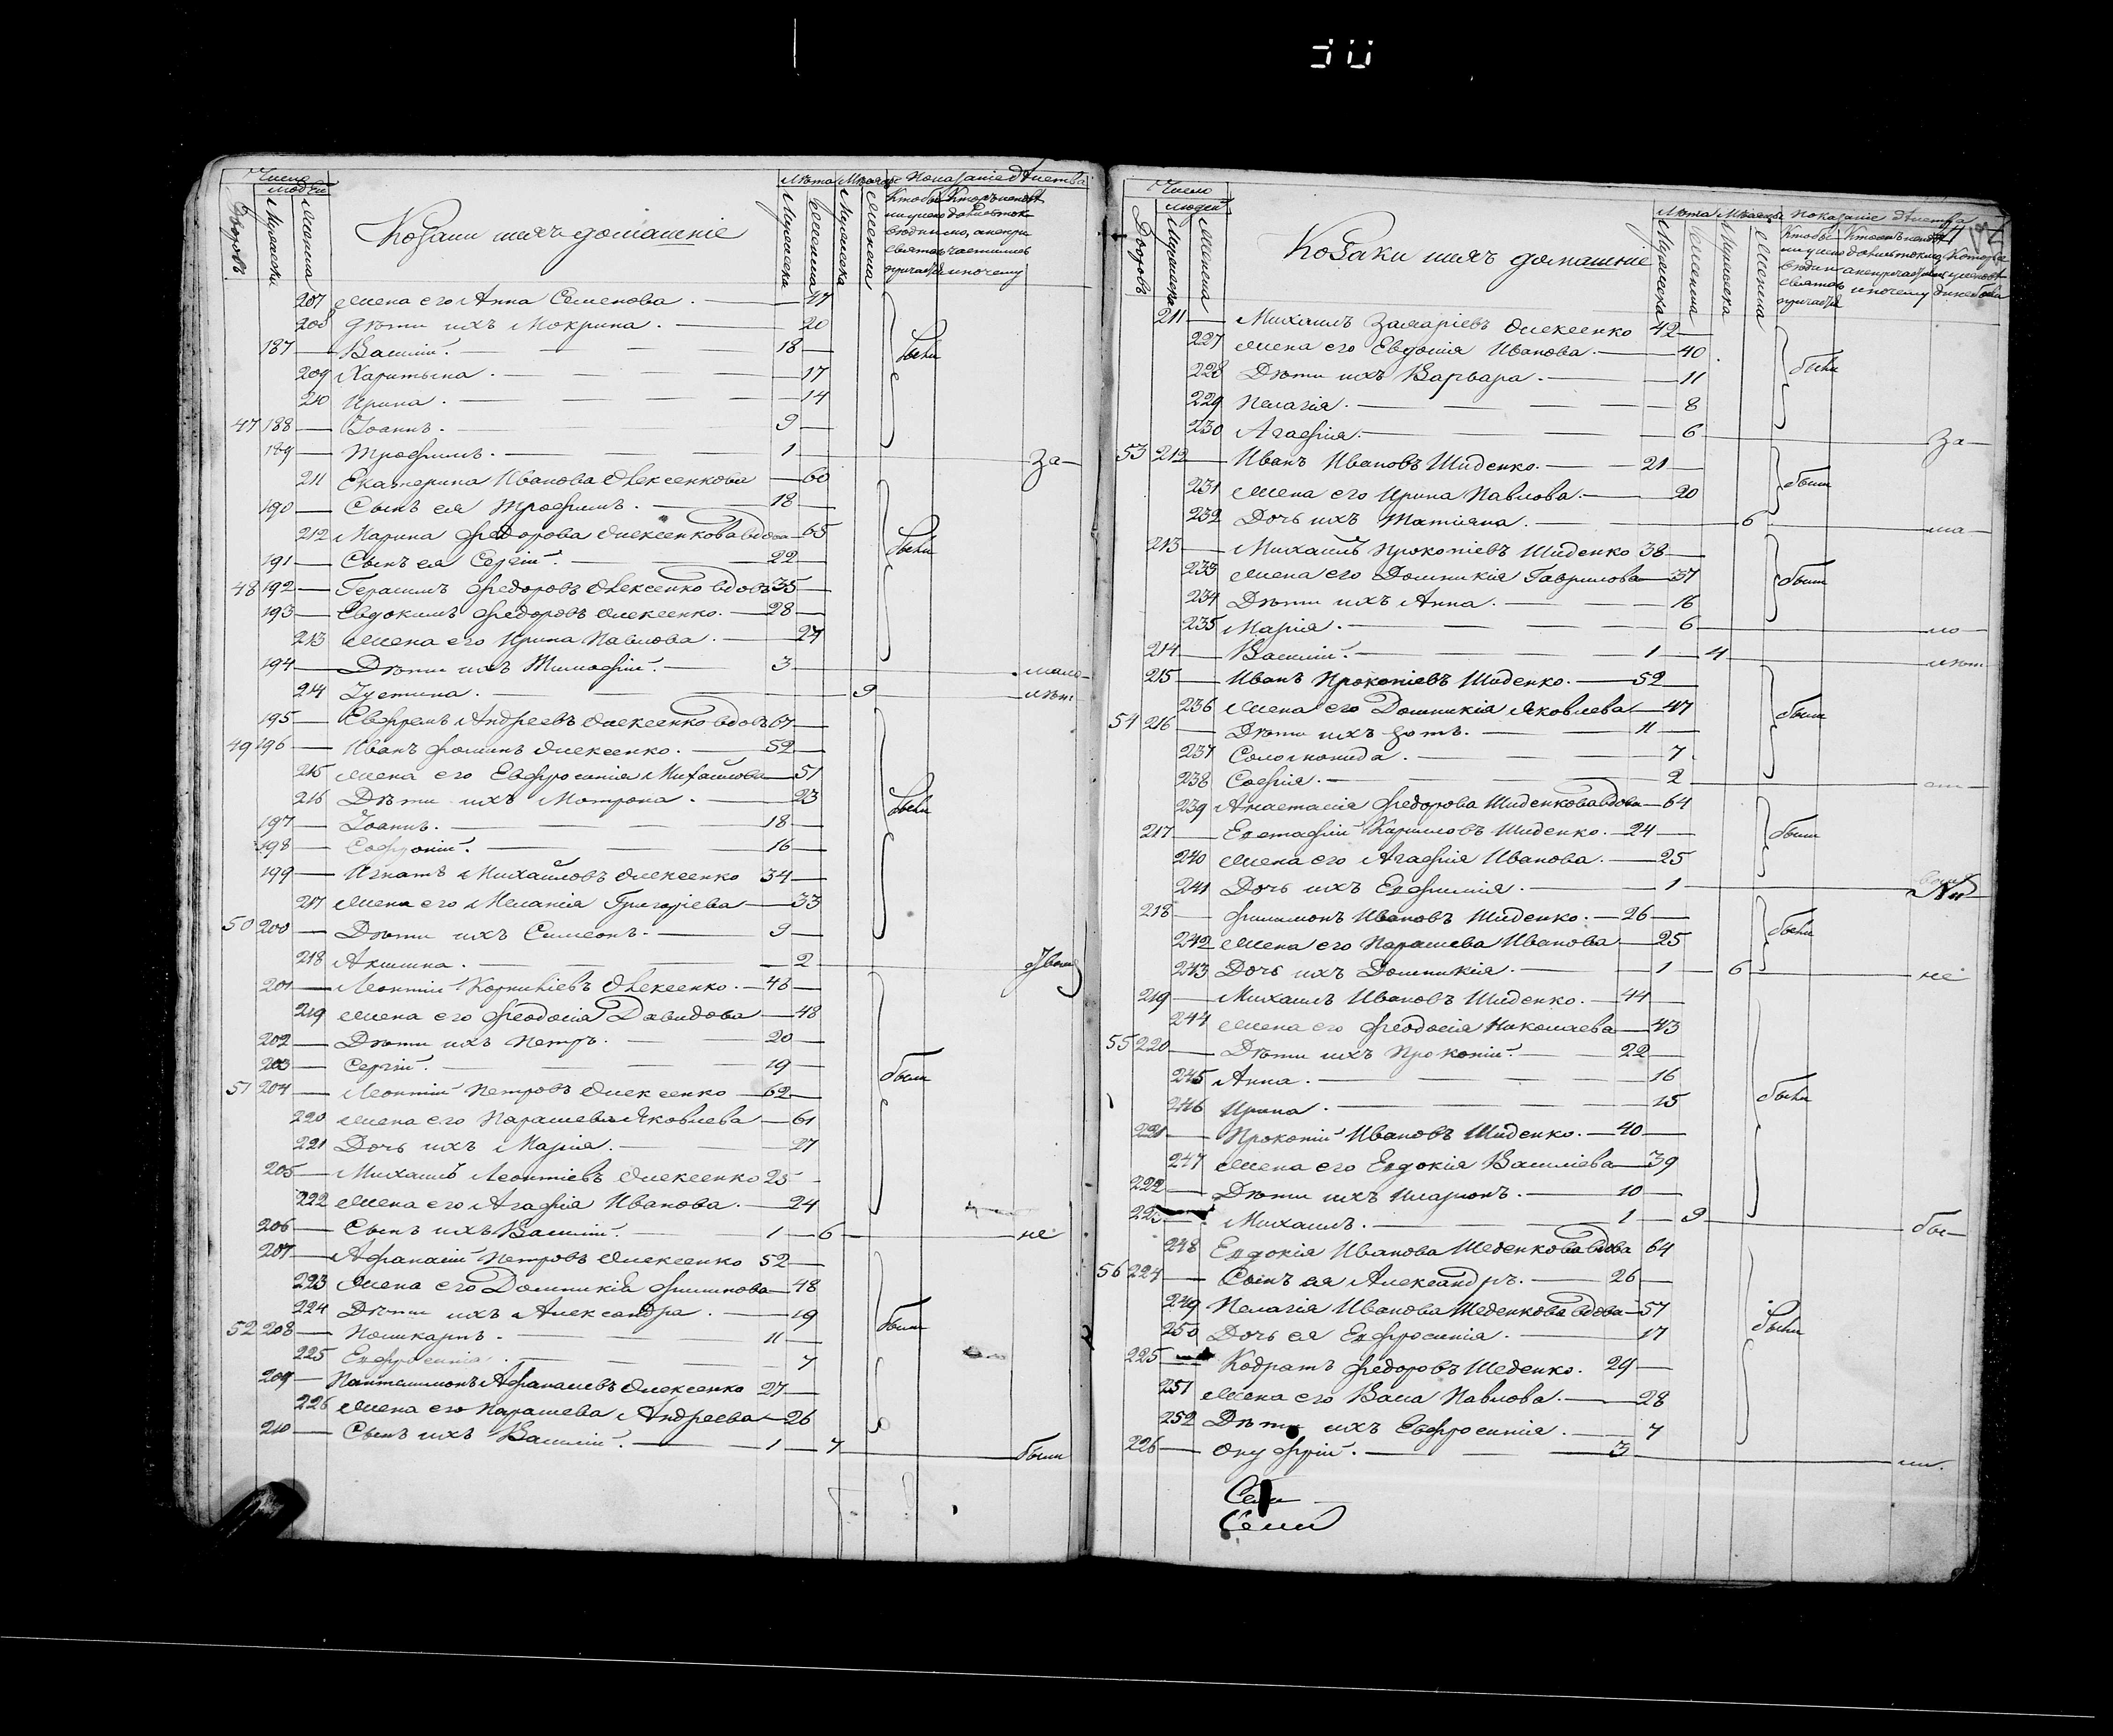 Число людей
Дворовъ
Мужеска
Женска
Козаки ихъ домашніе
Лѣта
Мѣсяцы
Показаніе дѣйства
207 Жена его Анна Семенова. — 47
208 Дѣти ихъ Мокрина. — 20
187 — Василій. — 18 —
209 Харитына. — 17
210 Ирина. — 14
47 188 — Іоаннъ. — 9 —
189 — Трофимъ. — 1 — за —
211 Екатерина Иванова Олексенкова — 60
190 — Сынъ ея Трофимъ. — 18 —
212 Марина Федорова Олексенкова вдова — 65
были
191 — Сынъ ея Сергій. — 22 —
48 192 — Герасимъ Федоровъ Олексенко вдовъ 35 —
193 — Евдокимъ Федоровъ Олексенко. — 28 —
213 Жена его Ирина Павлова. — 27
194 — Дѣти ихъ Тимофій. — 3 — мало-
214 Іустина. — 9 — лѣт.
195 — Евфремъ Андреевъ Олексенко вдовъ 67 —
49 196 — Иванъ Фоминъ Олексенко. — 52 —
215 Жена его Евфросинія Михайлова — 51
216 Дѣти ихъ Мотрона. — 23
были
197 — Іоаннъ. — 18 —
198 — Софроній. — 16 —
199 — Игнатъ Михайловъ Олексенко 34 —
217 Жена его Меланія Григорієва — 33
50 200 — Дѣти ихъ Симеонъ. — 9 —
218 Акилина. — 2
201 — Леонтій Корнилієвъ Олексенко. — 48 —
219 Жена его Феодосія Давидова — 48
202 — Дѣти ихъ Петръ. — 20 —
203 — Сергій. — 19 —
были
51 204 — Леонтій Петровъ Олексенко — 62 —
220 Жена его Парашева Яковлева — 61
221 Дочь ихъ Марія. — 27
205 — Михаилъ Леонтієвъ Олексенко 25 —
222 Жена его Агафія Иванова. — 24
206 — Сынъ ихъ Василій. — 1 — 6 — не
207 — Афанасій Петровъ Олексенко 52 —
223 Жена его Домникія Филипова — 48
224 Дѣти ихъ Александра. — 19
были
52 208 — Поликарпъ. — 11 —
225 Евфросинія. — 7
209 — Пантелимонъ Афанасієвъ Олексенко 27 —
226 Жена его Парашева Андреева — 26
210 — Сынъ ихъ Василій. — 1 — 7 — были
Число людей
Дворовъ
Мужеска
Женска
Козаки ихъ домашніе
Лѣта
Мѣсяцы
Показаніе дѣйства
211 — Михаилъ Захарієвъ Олексенко 42 —
227 Жена его Евдокія Иванова. — 40
228 Дѣти ихъ Варвара. — 11
были
229 Пелагія. — 8
230 Агафія. — 6 — за —
53 212 — Иванъ Ивановъ Шиденко. — 21 —
231 Жена его Ирина Павлова. — 20
были
232 Дочь ихъ Татіяна. — 6 — ма —
213 — Михаилъ Прокопієвъ Шиденко 38 —
233 Жена его Домникія Гаврилова — 37
были
234 Дѣти ихъ Анна. — 16
235 Марія. — 6 — ло —
214 — Василій. — 1 — 4 — лѣт
215 — Иванъ Прокопієвъ Шиденко. — 52 —
236 Жена его Домникія Яковлева — 47
были
54 216 — Дѣти ихъ Зотъ. — 11 —
237 Соломонида. — 7
238 Софія. — 2
239 Анастасія Федорова Шиденкова вдова — 64
217 — Евстафій Кириловъ Шиденко. — 24 —
были
240 Жена его Агафія Иванова. — 25
241 Дочь ихъ Евфимія. — 1
218 — Филимонъ Ивановъ Шиденко. — 26 —
были
242 Жена его Парашева Иванова — 25
243 Дочь ихъ Домникія. — 1 — 6 — не
219 — Михаилъ Ивановъ Шиденко. — 44 —
244 Жена его Феодосія Николаева — 43
55 220 — Дѣти ихъ Прокопій. — 22 —
245 Анна. — 16
были
246 Ирина. — 15
221 — Прокопій Ивановъ Шиденко. — 40 —
247 Жена его Евдокія Василієва — 39
222 — Дѣти ихъ Иларіонъ. — 10 —
223 — Михаилъ. — 1 — 9 — бы —
248 Евдокія Иванова Шеденкова вдова 64
56 224 — Сынъ ея Александръ. — 26 —
249 Пелагія Иванова Шеденкова вдова — 57
были
250 Дочь ея Евфросинія. — 17
225 — Кодратъ Федоровъ Шеденко. 29 —
251 Жена его Васа Павлова. — 28
252 Дѣти ихъ Евфросинія. — 7
226 — Онуфрій. — 3 — ли.